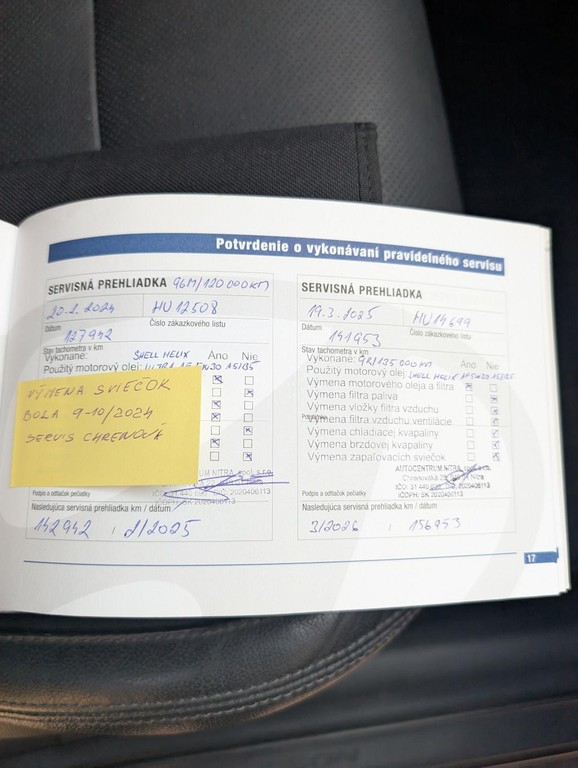 Potvrdenie o vykonávaní pravidelného servisu
SERVISNÁ PREHLIADKA 96M/120 000KM
20.2.2024
HU12508
Dátum
Číslo zákazkového listu
127942
Stav tachometra v km
Vykonané:
SHELL HELIX
Ano
Nie
Použitý motorový olej:
VÝMENA SVIEČOK
BOLA 9-10/2024
SERVIS CHRENOVÁ
Podpis a odtlačok pečiatky
Nasledujúca servisná prehliadka km / dátum
142942 / 2/2025
SERVISNÁ PREHLIADKA
19.3.2025
HU14699
Dátum
Číslo zákazkového listu
141953
Stav tachometra v km
Vykonané:
Ano
Nie
Použitý motorový olej: SHELL HELIX
Výmena motorového oleja a filtra
Výmena filtra paliva
Výmena vložky filtra vzduchu
Výmena filtra vzduchu ventilácie
Výmena chladiacej kvapaliny
Výmena brzdovej kvapaliny
Výmena zapaľovacích sviečok
AUTOCENTRUM NITRA, spol. s r.o.
Nasledujúca servisná prehliadka km / dátum
3/2026 / 156953
17